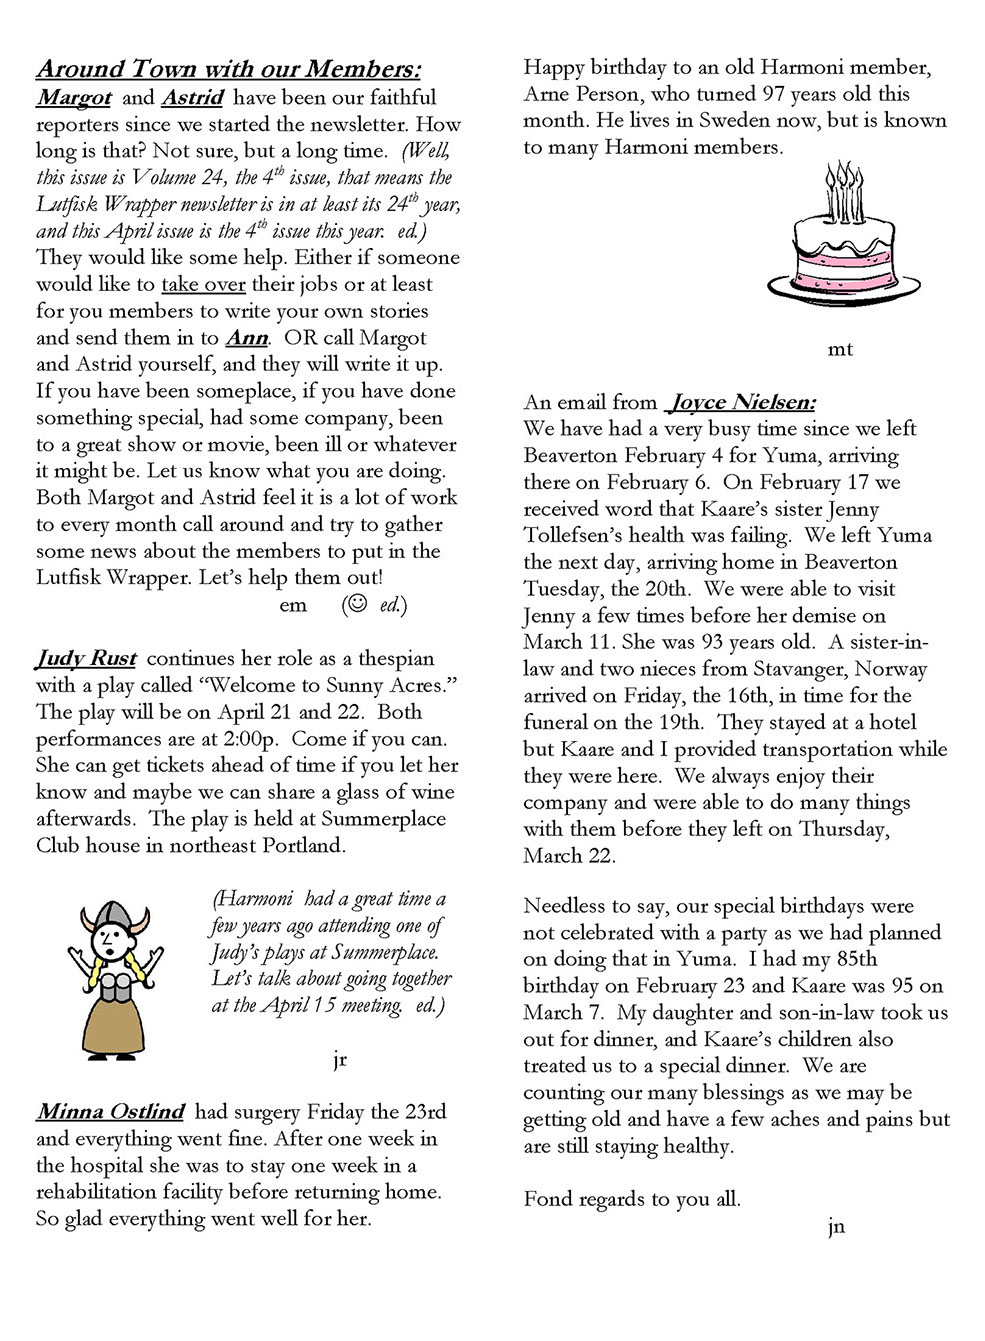 Around Town with our Members:
Margot and Astrid have been our faithful
reporters since we started the newsletter. How
long is that? Not sure, but a long time. (Well,
this issue is Volume 24, the 4th issue, that means the
Lutfisk Wrapper newsletter is in at least its 24th year,
and this April issue is the 4th issue this year. ed.)
They would like some help. Either if someone
would like to take over their jobs or at least
for you members to write your own stories
and send them in to Ann. OR call Margot
and Astrid yourself, and they will write it up.
If you have been someplace, if you have done
something special, had some company, been
to a great show or movie, been ill or whatever
it might be. Let us know what you are doing.
Both Margot and Astrid feel it is a lot of work
to every month call around and try to gather
some news about the members to put in the
Lutfisk Wrapper. Let's help them out!
em (☺ ed.)
Judy Rust continues her role as a thespian
with a play called “Welcome to Sunny Acres.”
The play will be on April 21 and 22. Both
performances are at 2:00p. Come if you can.
She can get tickets ahead of time if you let her
know and maybe we can share a glass of wine
afterwards. The play is held at Summerplace
Club house in northeast Portland.
(Harmoni had a great time a
few years ago attending one of
Judy's plays at Summerplace.
Let's talk about going together
at the April 15 meeting. ed.)
jr
Minna Ostlind had surgery Friday the 23rd
and everything went fine. After one week in
the hospital she was to stay one week in a
rehabilitation facility before returning home.
So glad everything went well for her.
Happy birthday to an old Harmoni member,
Arne Person, who turned 97 years old this
month. He lives in Sweden now, but is known
to many Harmoni members.
mt
An email from Joyce Nielsen:
We have had a very busy time since we left
Beaverton February 4 for Yuma, arriving
there on February 6. On February 17 we
received word that Kaare's sister Jenny
Tollefsen's health was failing. We left Yuma
the next day, arriving home in Beaverton
Tuesday, the 20th. We were able to visit
Jenny a few times before her demise on
March 11. She was 93 years old. A sister-in-
law and two nieces from Stavanger, Norway
arrived on Friday, the 16th, in time for the
funeral on the 19th. They stayed at a hotel
but Kaare and I provided transportation while
they were here. We always enjoy their
company and were able to do many things
with them before they left on Thursday,
March 22.
Needless to say, our special birthdays were
not celebrated with a party as we had planned
on doing that in Yuma. I had my 85th
birthday on February 23 and Kaare was 95 on
March 7. My daughter and son-in-law took us
out for dinner, and Kaare's children also
treated us to a special dinner. We are
counting our many blessings as we may be
getting old and have a few aches and pains but
are still staying healthy.
Fond regards to you all.
jn